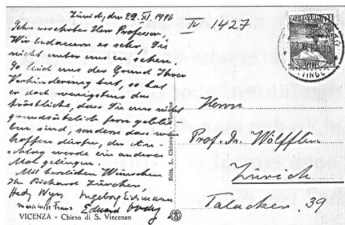 Zürich, den 22. XI. 1916
Sehr verehrter Herr Professor,
Wir bedauern es sehr, Sie
nicht unter uns zu sehen.
So leid uns der Grund Ihrer
Verhinderung tut, so hat
er doch wenigstens das
tröstliche, dass Sie uns nicht
grundsätzlich fern geblie-
ben sind, sondern dass wir
hoffen dürfen, die
werde ein anderes
Mal gelingen.
Mit herzlichen Wünschen
Ihr Richard Zürcher,
Hedy Wyss Ingeborg
Franz Eduard
VICENZA - Chiesa di S. Vincenzo
IV 1427
Herrn
Prof. Dr. Wölfflin
Zürich
Talacker 39